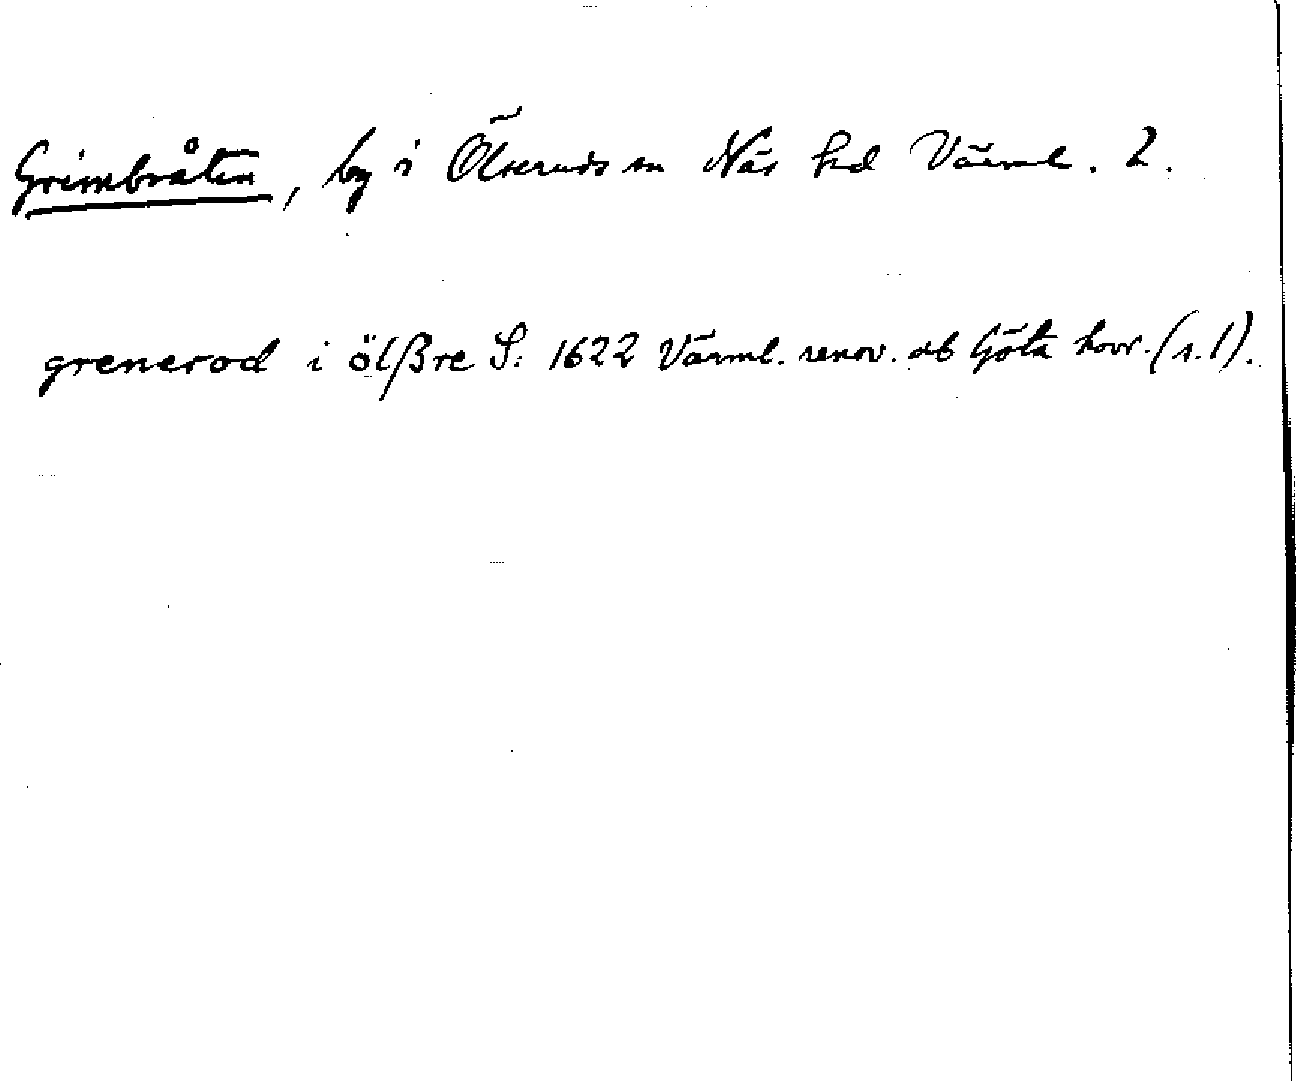 Grimbråten, by i Ölseruds sn Näs hd Värml. l.
grenerod i ölßre S: 1622 Värml. renov. db Göta hovr. (s. 1).